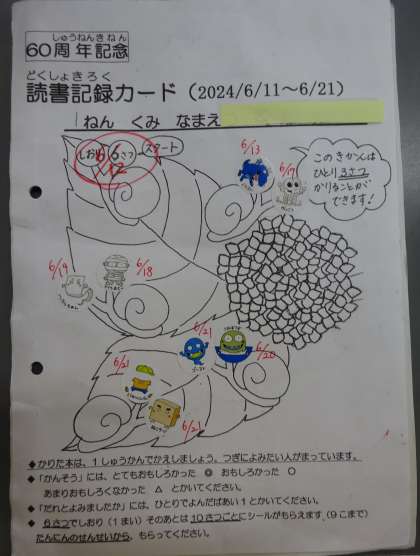 しゅうねんきねん
60周年記念
どくしょきろく
読書記録カード（2024/6/11～6/21）
1ねん　くみ　なまえ
しおり 6さつ スタート
6/12
6/13
6/17
このきかんは
ひとり3さつ
かりることが
できます!
6/19
6/18
6/21
6/20
6/21
6/21
◆かりた本は、1しゅうかんでかえしましょう。つぎによみたい人がまっています。
◆「かんそう」には、とてもおもしろかった　◎　おもしろかった　○
あまりおもしろくなかった　△　とかいてください。
◆「だれとよみましたか」には、ひとりでよんだばあい1とかいてください。
◆　6さつでしおり（1まい）そのあとは10さつごとにシールがもらえます（9こまで）
たんにんのせんせいから、もらってください。